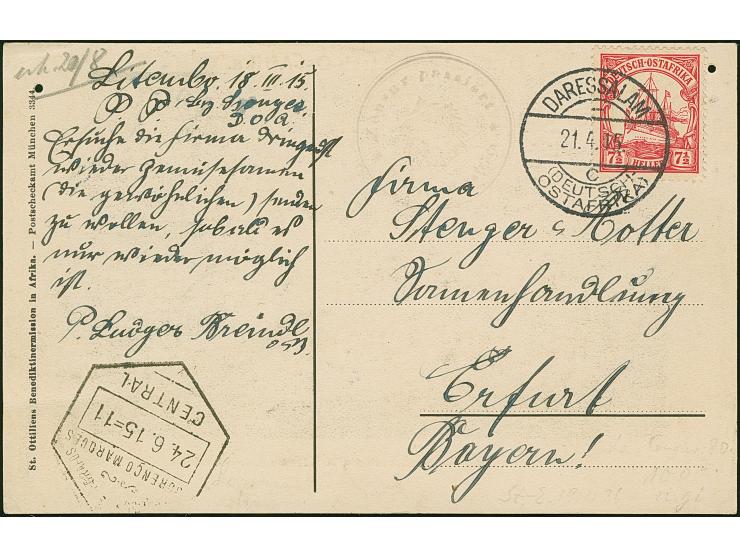 erh. 20/8
Litembo, 18 III. 15.
P. P. Songea
D. O. A.
Ersuche die Firma dringendst
wieder Gemüsesamen
(die gewöhnlichen) senden
zu wollen, sobald es
nur wieder möglich
ist.
P. Ludger Breindl
O S B.
St. Ottiliens Benediktinermission in Afrika. — Postscheckamt München 3344.
LOURENÇO MARQUES
24. 6. 15=11
CENTRAL
passiert
DEUTSCH-OSTAFRIKA
7½ HELLER 7½
DARESSALAM
21.4.15
C
(DEUTSCH-
OSTAFRIKA)
Firma
Stenger & Rotter
Samenhandlung
Erfurt
Bayern!